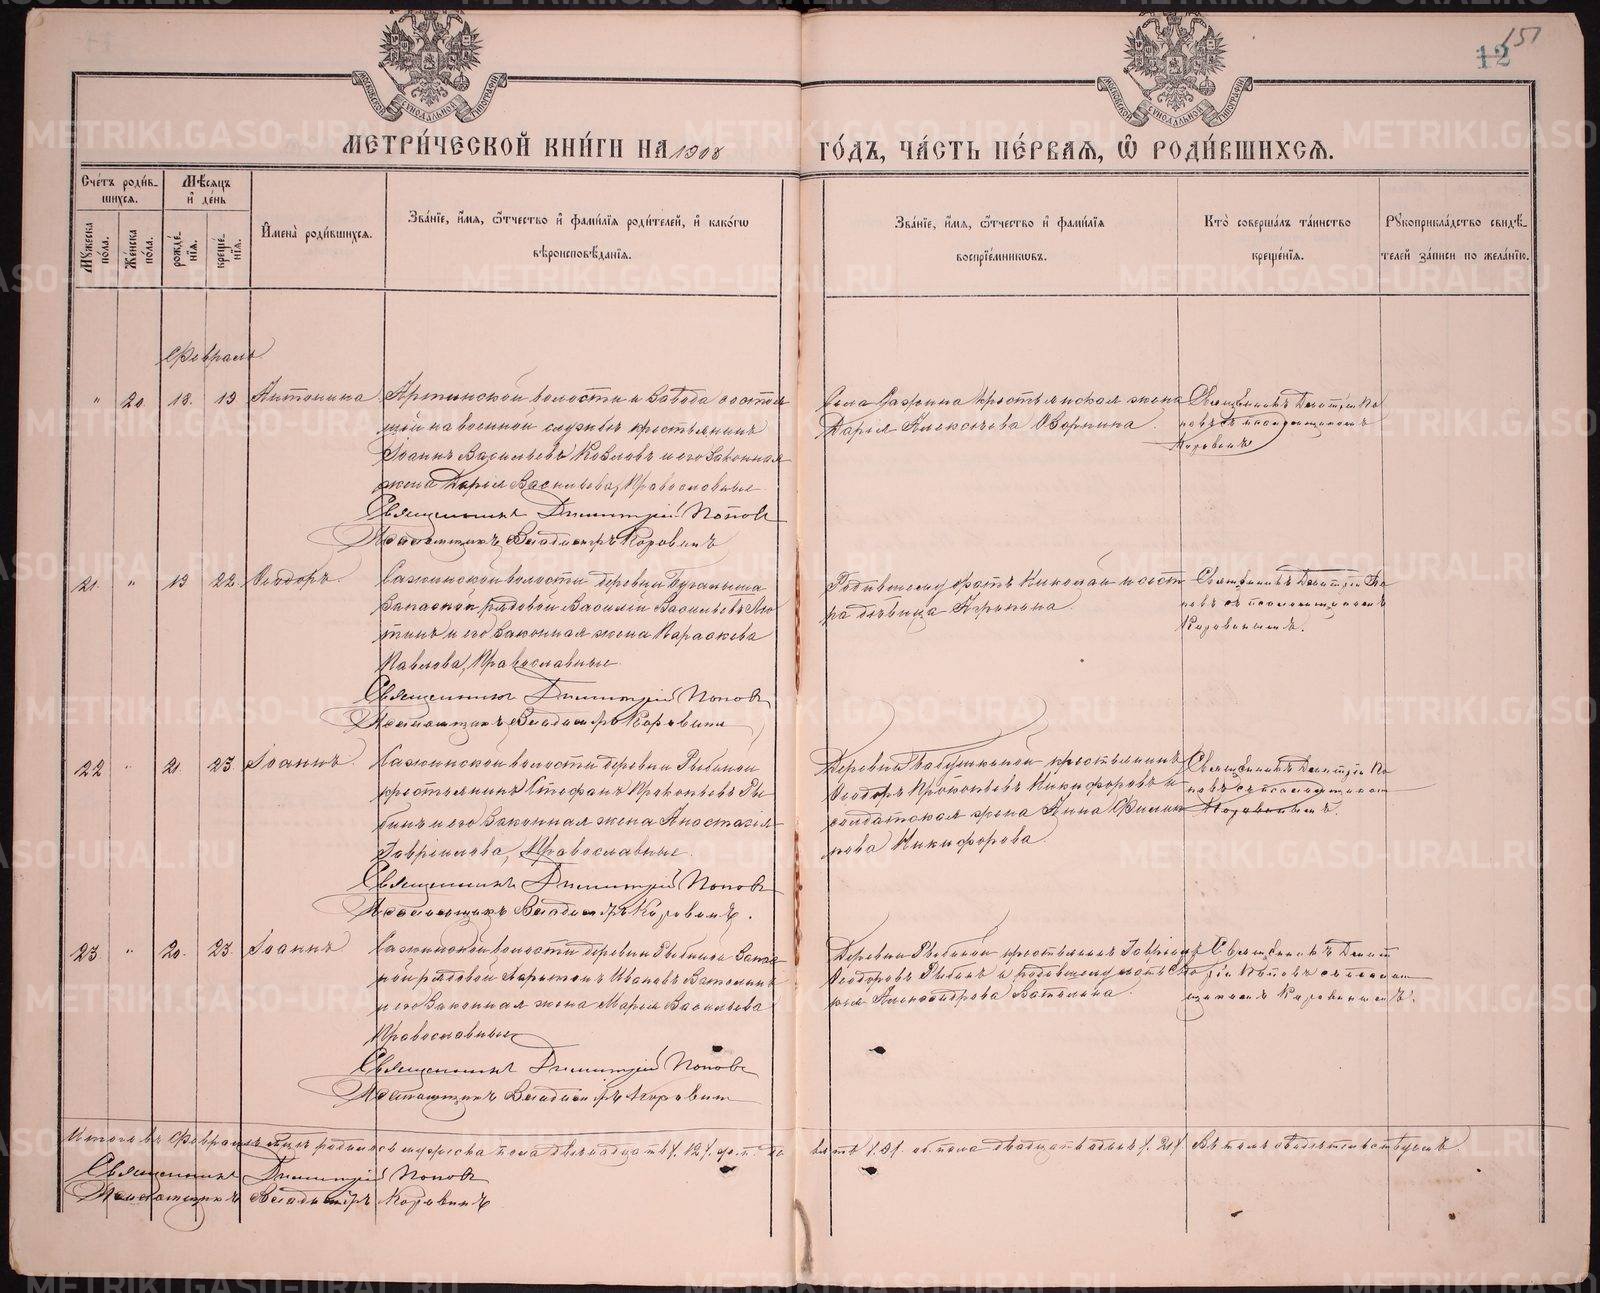 12
151
МЕТРИ́ЧЕСКОЙ КНИ́ГИ НА 1908 ГО́ДЪ, ЧА́СТЬ ПЕ́РВАѦ, Ѡ РОДИ́ВШИХСѦ.
Сче́тъ роди́в-
шихся.
Мѣсяцъ
и де́нь
Мꙋжеска
по́ла.
Же́нска
по́ла.
рожде́-
нїя.
креще-
нїя.
И҆мена̀ роди́вшихся.
Зва́нїе, и҆́мя, ѻ҆́тчество и҆ фами́лїя роди́телей, и҆ како́гѡ
вѣроисповѣ́данїя.
Зва́нїе, и҆́мя, ѻ҆́тчество и҆ фами́лїя
воспрїе́мникѡвъ.
Кто̀ соверша́лъ та́инство
креще́нїя.
Рꙋкоприкла́дство свидѣ́-
телей за́писи по жела́нїю.
Февраль
" 20 18. 19 Антонина
Артинской волости и Завода состоя
щий на военной службѣ крестьянинъ
Іоаннъ Васильевъ Козловъ и его законная
жена Дарья Васильева, Православные
Священникъ Димитрій Поповъ
Псаломщикъ Владиміръ Коровинъ
Села Сажина крестьянская жена
Дарья Алексѣева Озорнина.
Священникъ Димитрій По
повъ съ псаломщикомъ
Коровинымъ
21. " 19 22. Ѳеодоръ.
Сажинской волости деревни Бугалыша
Запасной рядовой Василій Васильевъ
и его законная жена Параскева
Павлова, Православные.
Священникъ Димитрій Поповъ
Псаломщикъ Владиміръ Коровинъ
Родившему братъ Николай и сест
ра дѣвица
Священникъ Димитрій По
повъ съ псаломщикомъ
Коровинымъ.
22 " 21. 23. Іоаннъ.
Сажинской волости деревни Рыбиной
крестьянинъ Стефанъ Прокопьевъ Ры
бинъ и его законная жена Анастасія
Гавріилова, Православные.
Священникъ Димитрій Поповъ
Псаломщикъ Владиміръ Коровинъ.
Деревни крестьянинъ
Ѳеодоръ Прокопьевъ Никифоровъ и
солдатская жена Анна Филип
пова Никифорова.
Священникъ Димитрій По
повъ съ псаломщикомъ
Коровинымъ.
23. " 20. 23. Іоаннъ
Сажинской волости деревни Рыбиной Запас
ной рядовой Харитонъ Ивановъ Ватолинъ
и его законная жена Марья Васильева
Православные
Священникъ Димитрій Поповъ
Псаломщикъ Владиміръ Коровинъ
Деревни Рыбиной крестьянинъ Гавріилъ
Ѳеодоровъ Рыбинъ и родившему мать
Александрова Ватолина.
Священникъ Димит
рій Поповъ съ псалом
щикомъ Коровинымъ.
Итого въ Февралѣ мѣсяцѣ родилось мужеска пола двѣнадцать /12/ об. пола двадцать одинъ /21/ Въ томъ свидѣтельствуемъ.
Священникъ Димитрій Поповъ
Псаломщикъ Владиміръ Коровинъ